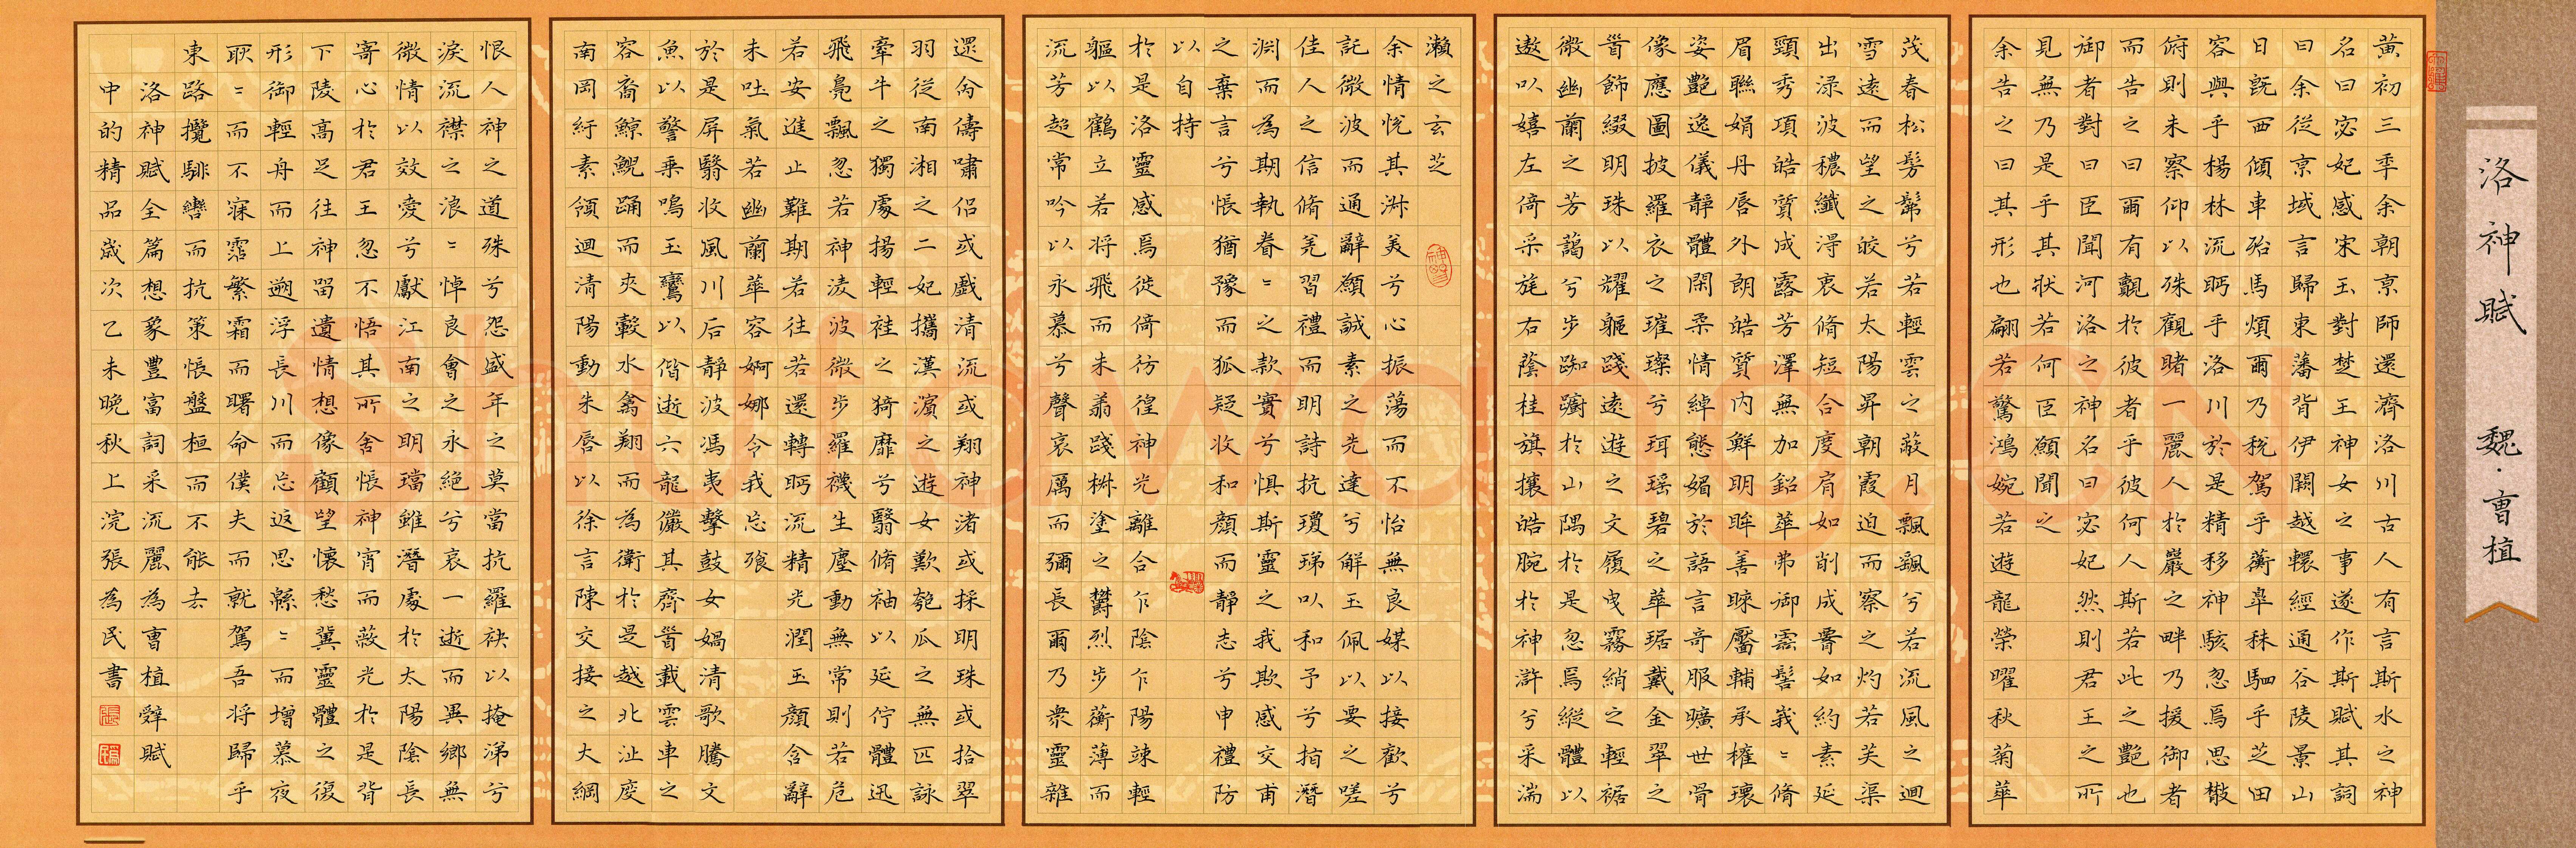 洛神賦 魏·曹植
黄初三秊余朝京師還濟洛川古人有言斯水之神
名曰宓妃感宋玉對楚王神女之事遂作斯賦其詞
曰余從京域言歸東藩背伊闕越轘經通谷陵景山
日既西傾車殆馬煩爾乃稅駕乎蘅皋秣駟乎芝田
容與乎楊林流眄乎洛川於是精移神駭忽焉思散
俯則未察仰以殊觀睹一麗人於巖之畔乃援御者
而告之曰爾有覿於彼者乎彼何人斯若此之艷也
御者對曰臣聞河洛之神名曰宓妃然則君王之所
見無乃是乎其狀若何臣願聞之
余告之曰其形也翩若驚鴻婉若遊龍榮曜秋菊華
茂春松髣髴兮若輕雲之蔽月飄颻兮若流風之迴
雪遠而望之皎若太陽昇朝霞迫而察之灼若芙渠
出渌波穠纖得衷脩短合度肩如削成腰如約素延
頸秀項皓質成露芳澤無加鉛華弗御雲髻峩=脩
眉聯娟丹唇外朗皓質内鮮明眸善睞靨輔承權瓌
姿艷逸儀靜體閑柔情綽態媚於語言奇服曠世骨
像應圖披羅衣之璀璨兮珥瑤碧之華琚戴金翠之
首飾綴明珠以耀軀踐遠遊之文履曳霧綃之輕裾
微幽蘭之芳藹兮步踟躕於山隅於是忽焉縱體以
遨以嬉左倚采旄右蔭桂旗攘皓腕於神滸兮采湍
瀨之玄芝
余情悅其淑美兮心振蕩而不怡無良媒以接歡兮
託微波而通辭願誠素之先達兮解玉佩以要之嗟
佳人之信脩羌習禮而明詩抗瓊珶以和予兮指潛
淵而為期執眷=之款實兮惧斯靈之我欺感交甫
之棄言兮悵猶豫而狐疑收和顏而靜志兮申禮防
以自持
於是洛靈感焉徙倚彷徨神光離合乍陰乍陽竦輕
軀以鶴立若将飛而未翔踐椒塗之鬱烈步蘅薄而
流芳超常吟以永慕兮聲哀厲而彌長爾乃衆靈雜
遝命儔嘯侶或戲清流或翔神渚或採明珠或拾翠
羽從南湘之二妃攜漢濱之遊女歎匏瓜之無匹詠
牽牛之獨處揚輕袿之猗靡兮翳脩袖以延佇體迅
飛鳧飄忽若神淩波微步羅襪生塵動無常則若危
若安進止難期若往若還轉眄流精光潤玉顏含辭
未吐氣若幽蘭華容婀娜令我忘飡
於是屏翳收風川后靜波馮夷擊鼓女媧清歌騰文
魚以警乘鳴玉鸞以偕逝六龍儼其齊首載雲車之
容裔鯨鯢踊而夾轂水禽翔而為衛於是越北沚度
南岡紆素領迴清陽動朱唇以徐言陳交接之大綱
恨人神之道殊兮怨盛年之莫當抗羅袂以掩涕兮
淚流襟之浪=悼良會之永絕兮哀一逝而異鄉無
微情以效愛兮獻江南之明璫雖潛處於太陽陰長
寄心於君王忽不悟其所舍悵神宵而蔽光於是背
下陵高足往神留遺情想像顧望懷愁冀靈體之復
形御輕舟而上遡浮長川而忘返思緜=而增慕夜
耿=而不寐霑繁霜而曙命僕夫而就駕吾将歸乎
東路攬騑轡而抗策悵盤桓而不能去
洛神賦全篇想象豐富詞采流麗為曹植辭賦
中的精品歲次乙未晚秋上浣張為民書